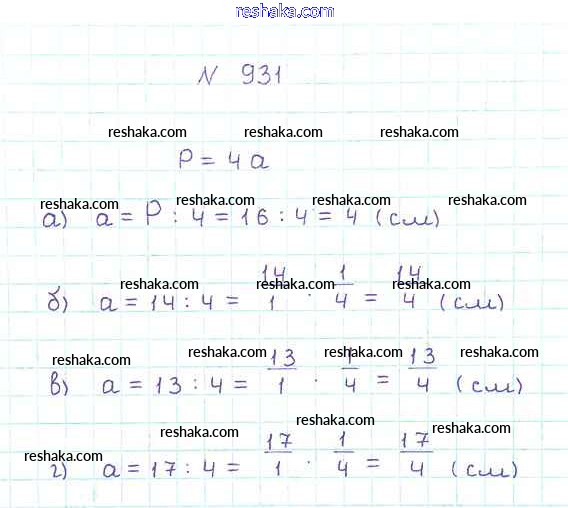 reshaka.com
N 931
reshaka.com reshaka.com reshaka.com
P = 4a
reshaka.com reshaka.com reshaka.com reshaka.com
а) a = P : 4 = 16 : 4 = 4 (см)
reshaka.com reshaka.com reshaka.com
б) a = 14 : 4 = 14/1 · 1/4 = 14/4 (см)
reshaka.com reshaka.com reshaka.com reshaka.com
в) a = 13 : 4 = 13/1 · 1/4 = 13/4 (см)
reshaka.com reshaka.com reshaka.com
г) a = 17 : 4 = 17/1 · 1/4 = 17/4 (см)
reshaka.com reshaka.com reshaka.com reshaka.com